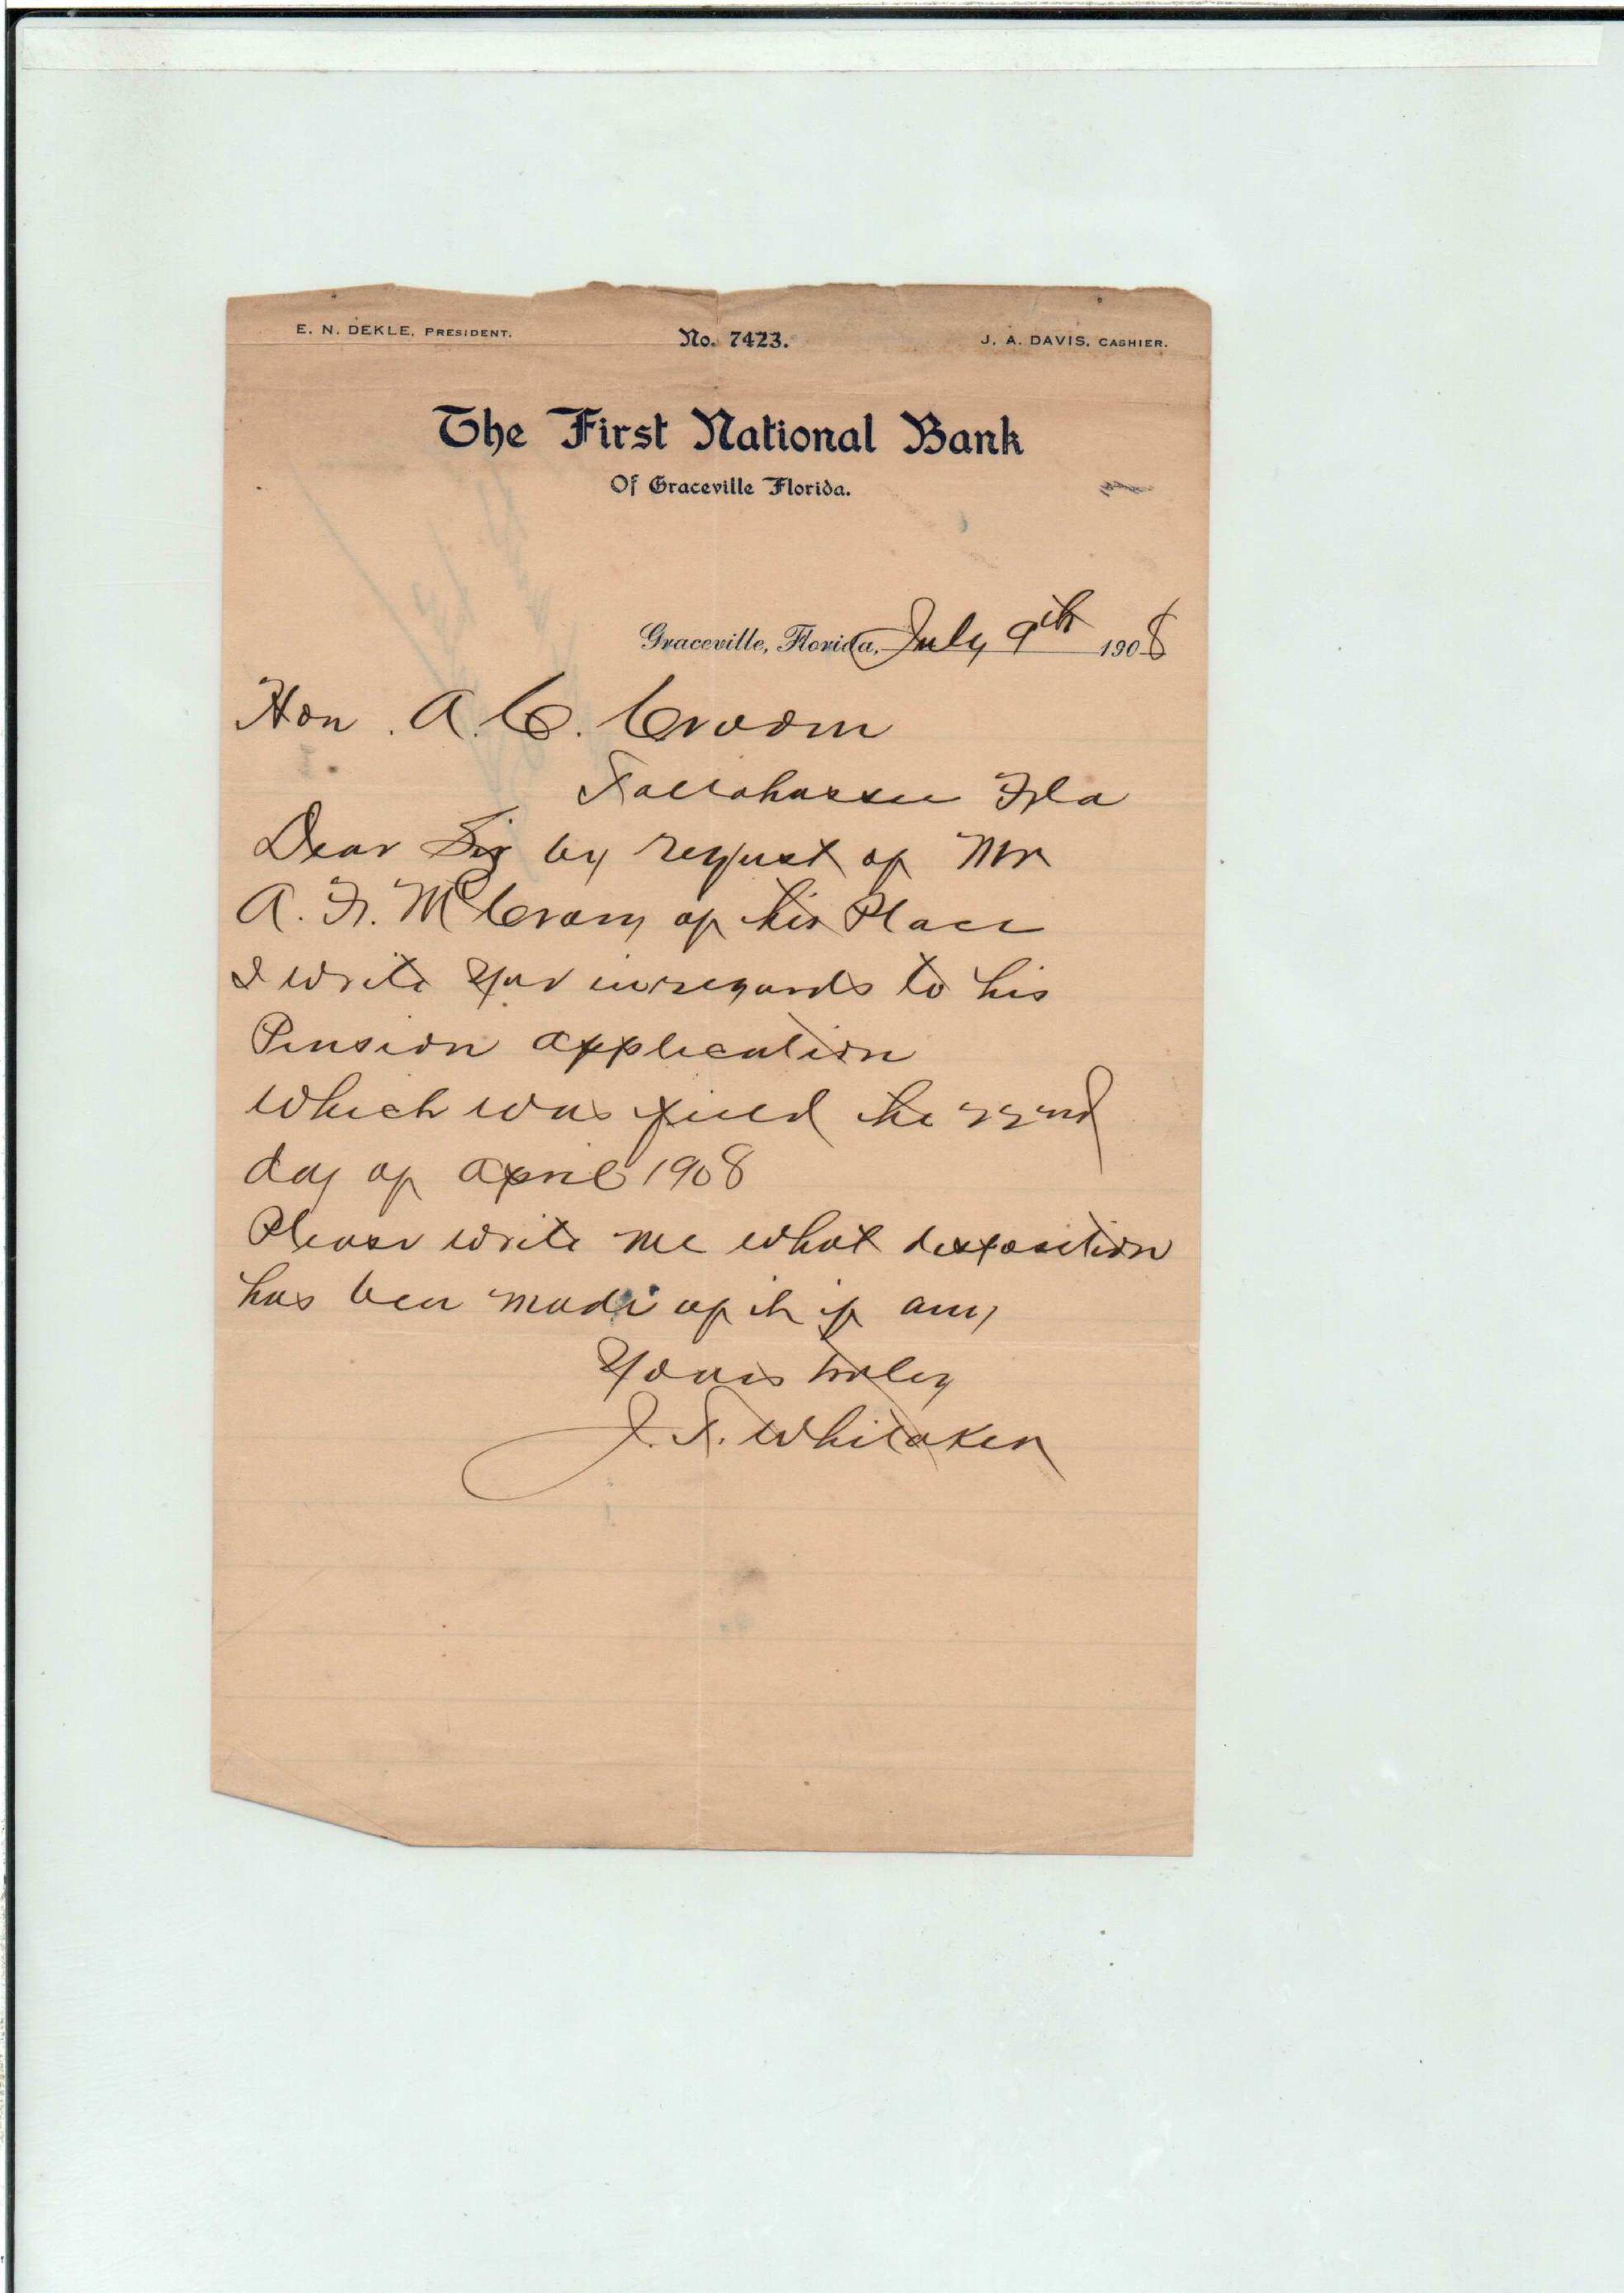 E. N. DEKLE, PRESIDENT. No. 7423. J. A. DAVIS, CASHIER.
The First National Bank
Of Graceville Florida.
Graceville, Florida, July 9th 1908
Hon. A. C. Croom
Tallahassee Fla
Dear Sir by request of Mr
A. F. McCrary of this Place
I write you in regards to his
Pension application
which was filed the 22nd
day of April 1908
Please write me what disposition
has been made of it if any
Yours truley
J. T. Whitaker